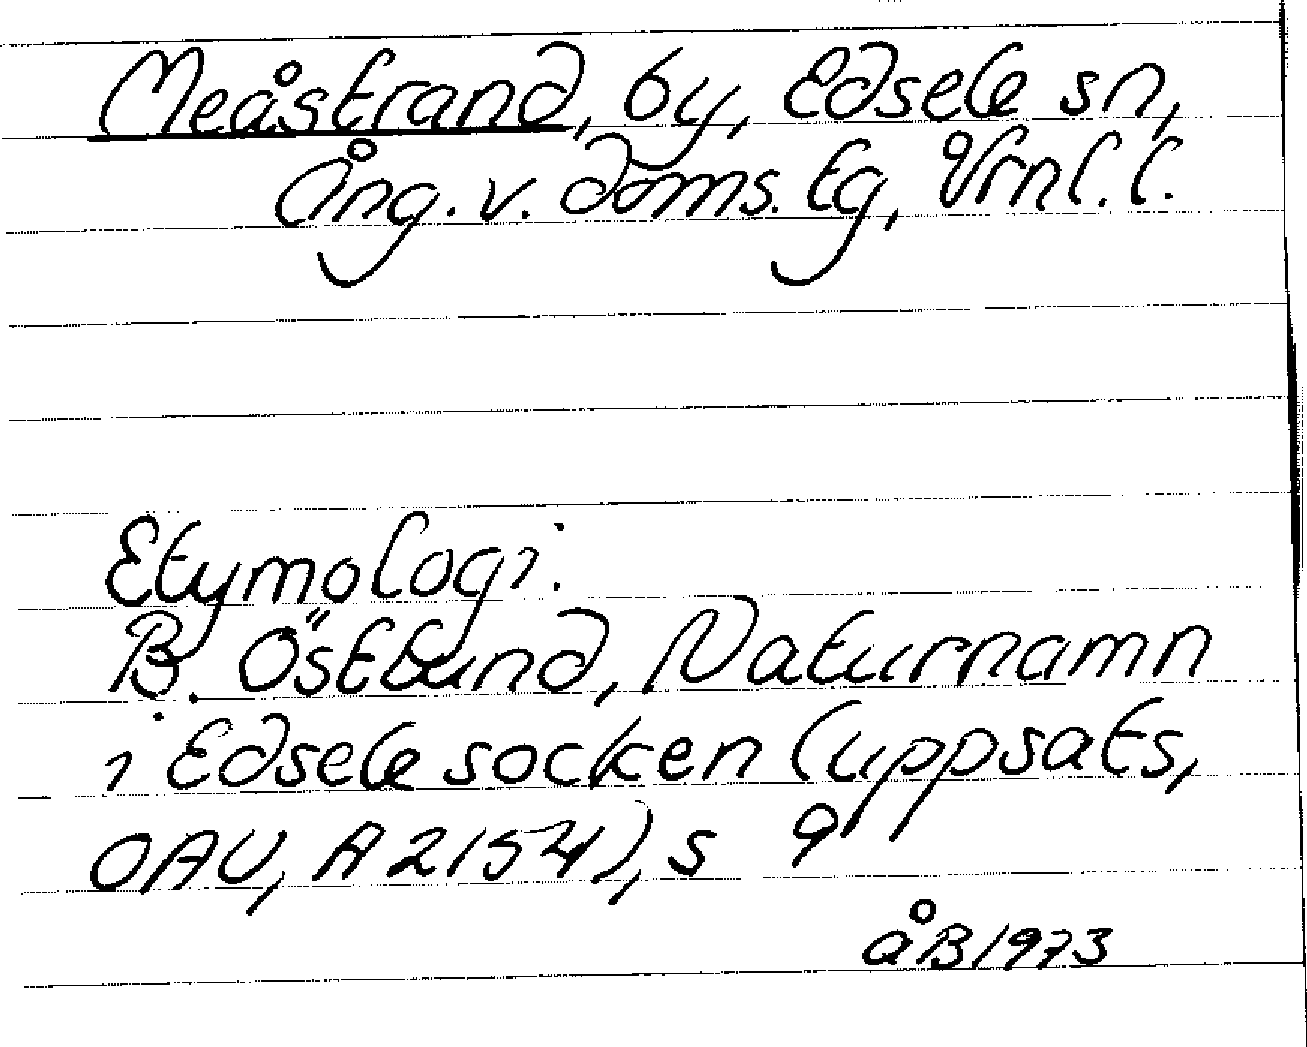 Meåstrand, by, Edsele sn,
Ång. v. doms. tg, Vrnl. l.
Etymologi.
B. Östlund, Naturnamn
i Edsele socken (uppsats,
OAU, A 2154), s 9
åB 1973